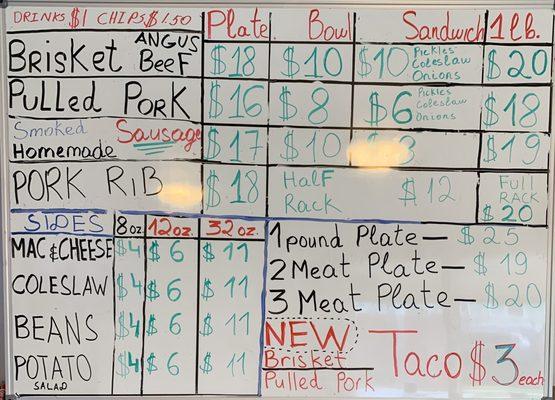 DRINKS $1 CHIPS $1.50 Plate Bowl Sandwich 1 lb.
Brisket ANGUS BEEF $18 $10 $10 Pickles Coleslaw Onions $20
Pulled Pork $16 $8 $6 Pickles Coleslaw Onions $18
Smoked Homemade Sausage $17 $10 $19
PORK RiB $18 Half Rack $12 Full RACK $20
SIDES 8 oz. 12 oz. 32 oz.
MAC & CHEESE $4 $6 $11
COLESLAW $4 $6 $11
BEANS $4 $6 $11
POTATO SALAD $4 $6 $11
1 pound Plate — $25
2 Meat Plate — $19
3 Meat Plate — $20
NEW
Brisket
Pulled Pork
Taco $3 each